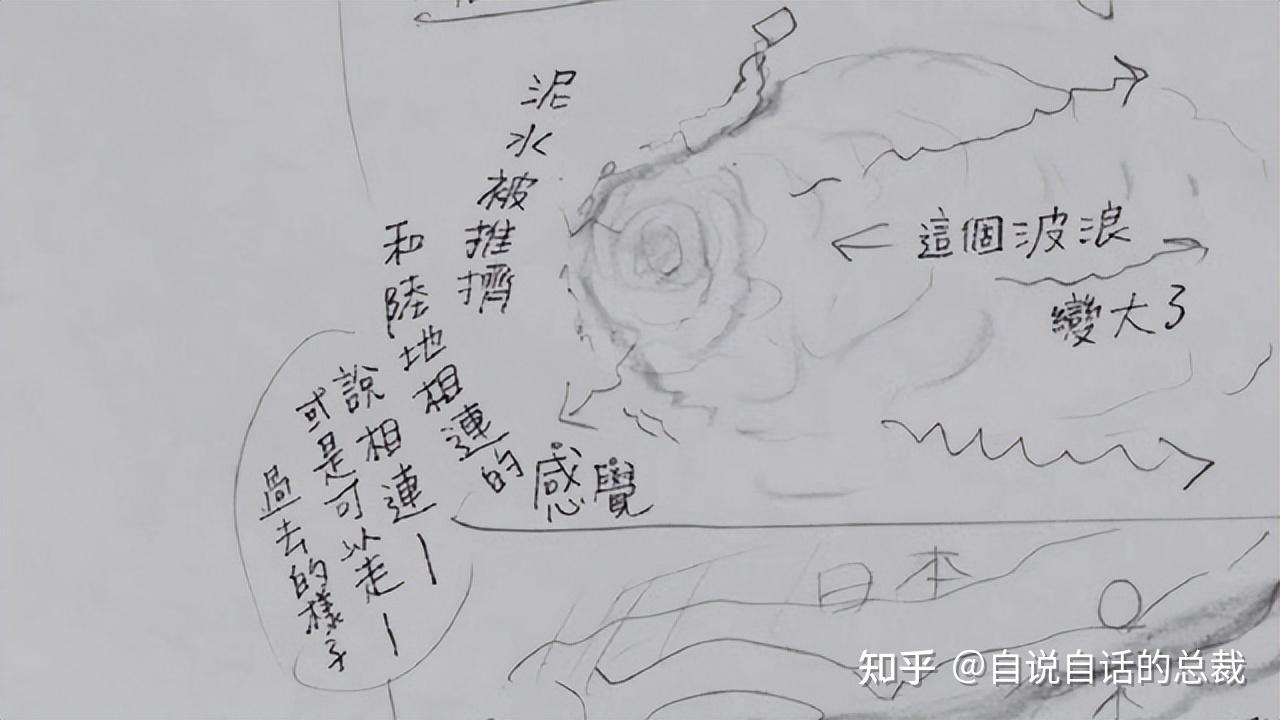 泥水被推擠
和陸地相連的
感覺
說相連—
或是可以走—
過去的樣子
這個波浪
變大了
日本
知乎 @自说自话的总裁